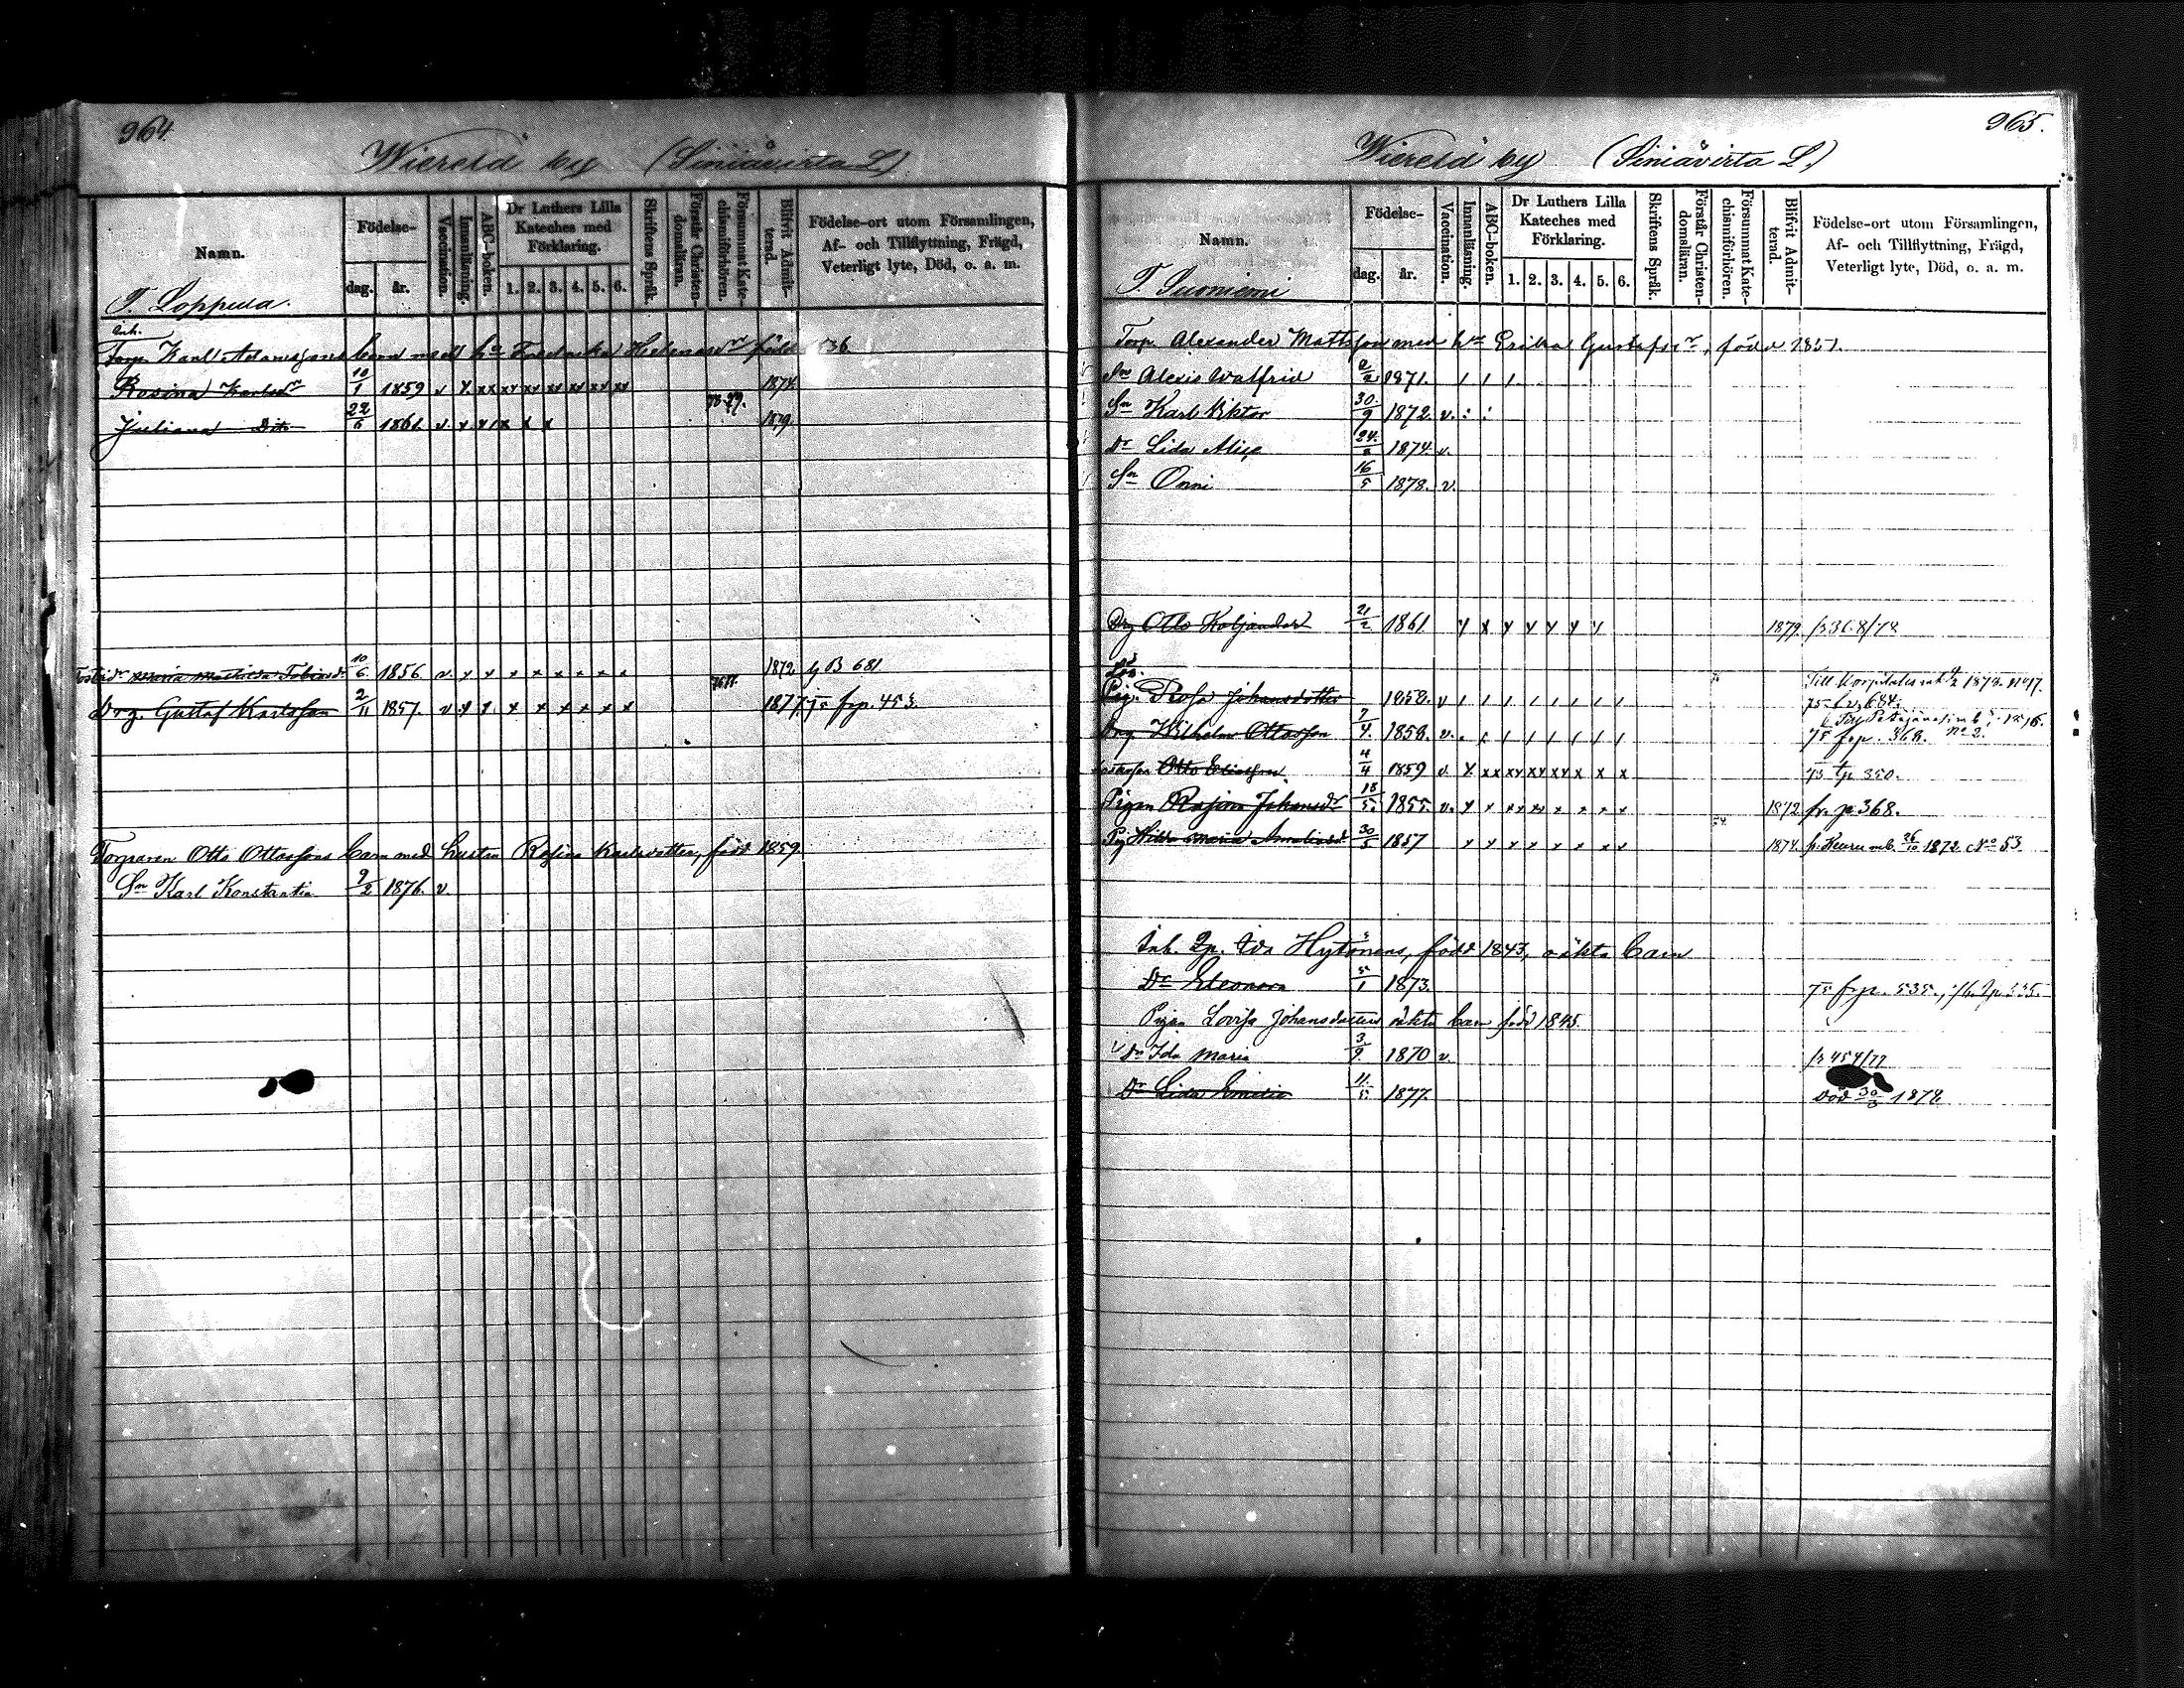 964.
Wierelä by (Siniävirta L.)
Namn.
Födelse-
dag. år.
Vaccination.
Innanläsning.
ABC-boken.
Dr Luthers Lilla Kateches med Förklaring.
1. 2. 3. 4. 5. 6.
Skriftens Språk.
Förstår Christendomsläran.
Försummat Katechismiförhören.
Blifvit Admitterad.
Födelse-ort utom Församlingen, Af- och Tillflyttning, Frägd, Veterligt lyte, Död, o. a. m.
T. Loppula.
Inh.
Torp. Karl Adamssons barn med ha Fredrika Helenasdr född 136
Rosina Karlsdr 10/1 1859 v y. xx xy xy xx xx xx xx 1874.
78.79.
Juliana Dito 22/6 1861. v. x x x x x 1879.
Maria Matilda Tobiasdr 10/6. 1856. v. x x x x x x x x 1872. y B 681
76 77.
Drg. Gustaf Karlsson 2/11 1857. v. y x. x x x x x x 1877. 75 frp. 453.
Torparen Otto Ottossons barn med hustru Rosina Karlsdotter, född 1859.
Sn Karl Konstantin 9/2 1876. v.
965.
Wierelä by (Siniävirta L.)
Namn.
Födelse-
dag. år.
Vaccination.
Innanläsning.
ABC-boken.
Dr Luthers Lilla Kateches med Förklaring.
1. 2. 3. 4. 5. 6.
Skriftens Språk.
Förstår Christendomsläran.
Försummat Katechismiförhören.
Blifvit Admitterad.
Födelse-ort utom Församlingen, Af- och Tillflyttning, Frägd, Veterligt lyte, Död, o. a. m.
T. Suoniemi
Torp. Alexander Mattsson med hu Erika Gustafsdr, född 1851.
Sn Alexis Walfrid 2/2 1871. / / /
Sn Karl Viktor 30./9 1872. v. : :
Dr Lida Alice 24./2 1874. v.
Sn Onni 16/5 1878. v.
Drg Otto Koljander 21/2 1861. y x y y y y y 1879. fr 368/78
Till Korpilaks 1878. N 47.
Pig. Rosa Johansdotter 1858. v / / / / / / / /
Drg Wilhelm Ottosson 7/4. 1858. v. . / / / / / / / 75 frp. 368.
Till Petäjäves N° 2.
Otto Eliasson. 4/4 1859 v. y. xx xy xy xy x x x 73 tp 350.
Pigan Rosina Johansdr 18/5. 1855. v. x x xx xx x x x x 1872 fr. p 368.
Pig Hilda Maria Amaliasdr 30/5 1857 x x x x x x x x 1874. fr. Keuru mb. 26/10 1872. No 53
Inh. Qp. Eva Hytönens, född 1843, oäkta barn
Dr Eleonora 5/1 1873. 75 frp. 535.
Pigan Lovisa Johansdotters oäkta barn född 1845.
Dr Ida Maria 3/9. 1870 v. fr 454/77
Dr Lida Emilia 11./5. 1877. död 30/3 1878.